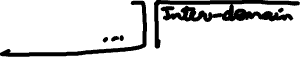 ...
Inter-domain